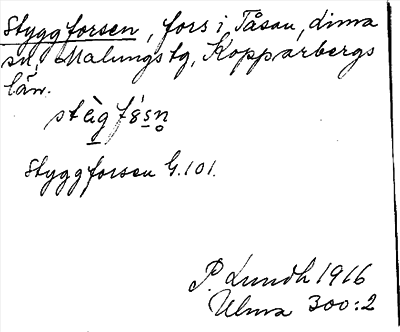 Styggforsen, fors i Tåsan, Lima
sn, Malungs tg, Kopparbergs
län.
Styggforsen G.101.
P. Lundh 1916
Ulma 300:2